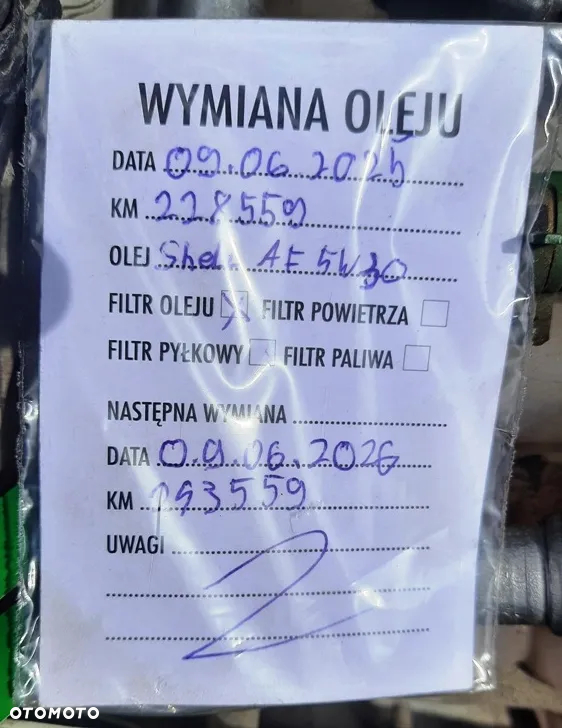 WYMIANA OLEJU
DATA 09.06.2025
KM 228559
OLEJ Shell AF 5W30
FILTR OLEJU X FILTR POWIETRZA
FILTR PYŁKOWY FILTR PALIWA
NASTĘPNA WYMIANA
DATA 09.06.2026
KM 243559
UWAGI
OTOMOTO